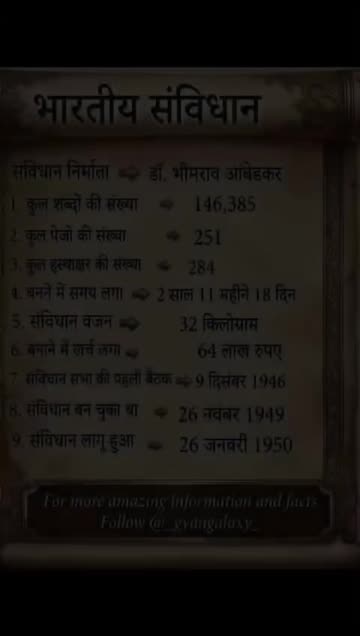 भारतीय संविधान
संविधान निर्माता ➩ डॉ. भीमराव आंबेडकर
1. कुल शब्दों की संख्या ➩ 146,385
2. कुल पेजो की संख्या ➩ 251
3. कुल हस्ताक्षर की संख्या ➩ 284
4. बनने में समय लगा ➩ 2 साल 11 महीने 18 दिन
5. संविधान वजन ➩ 32 किलोग्राम
6. बनाने में खर्च लगा ➩ 64 लाख रुपए
7. संविधान सभा की पहली बैठक ➩ 9 दिसंबर 1946
8. संविधान बन चुका था ➩ 26 नवंबर 1949
9. संविधान लागू हुआ ➩ 26 जनवरी 1950
For more amazing information and facts
Follow @_gyangalaxy_